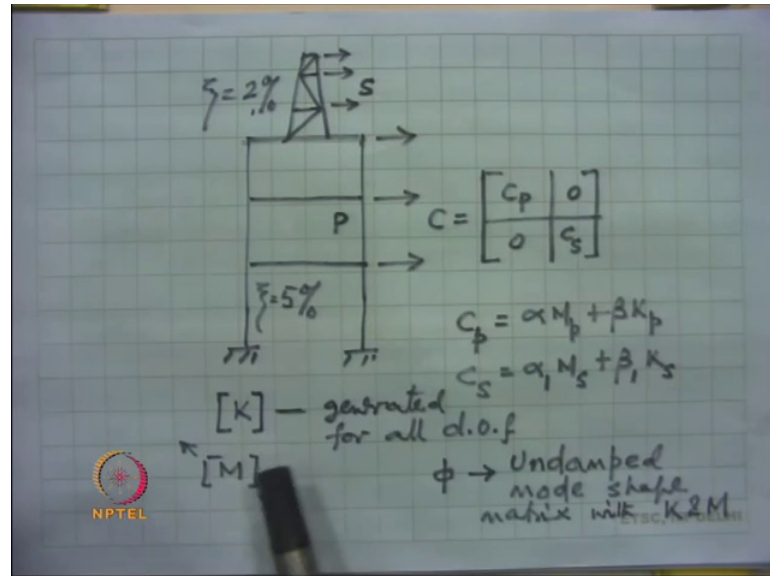 ξ = 2%
S
P
C = [ Cp | 0 ]
[ 0 | Cs ]
ξ = 5%
Cp = αMp + βKp
Cs = α₁Ms + β₁Ks
[K] — generated
for all d.o.f
[M]
ϕ → Undamped
mode shape
matrix with K&M
NPTEL